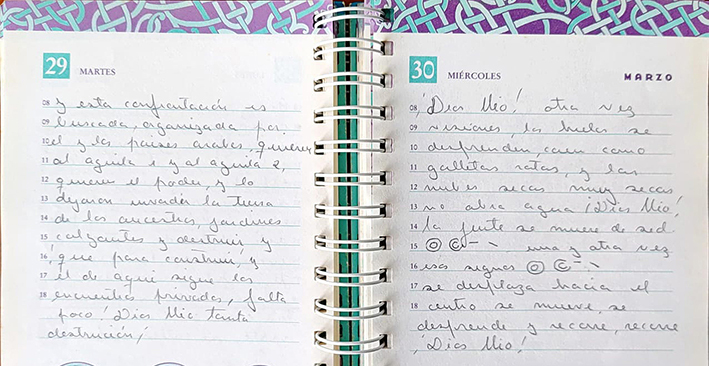 29 MARTES
08 y esta confrontación es
09 buscada, organizada por
10 el y los países arabes, quieren
11 al aguila 1 y al aguila 2,
12 quieren el poder, y lo
13 dejaron invadir la tierra
14 de los ancestros, jardines
15 colgantes y destruir y
16 que para construir, y
17 él de aquí sigue los
18 encuentros privados, falta
poco! Dios Mio tanta
destrucción!
30 MIÉRCOLES MARZO
08 ¡Dios Mio! otra vez
09 visiones, los hielos se
10 desprenden, caen como
11 galletitas rotas, y las
12 nubes secas muy secas
13 no abra agua ¡Dios Mio!
14 la gente se muere de sed
15 una y otra vez
16 esos signos
17 se desplaza hacia el
18 centro se mueve, se
desprende y recorre, recorre
¡Dios Mio!